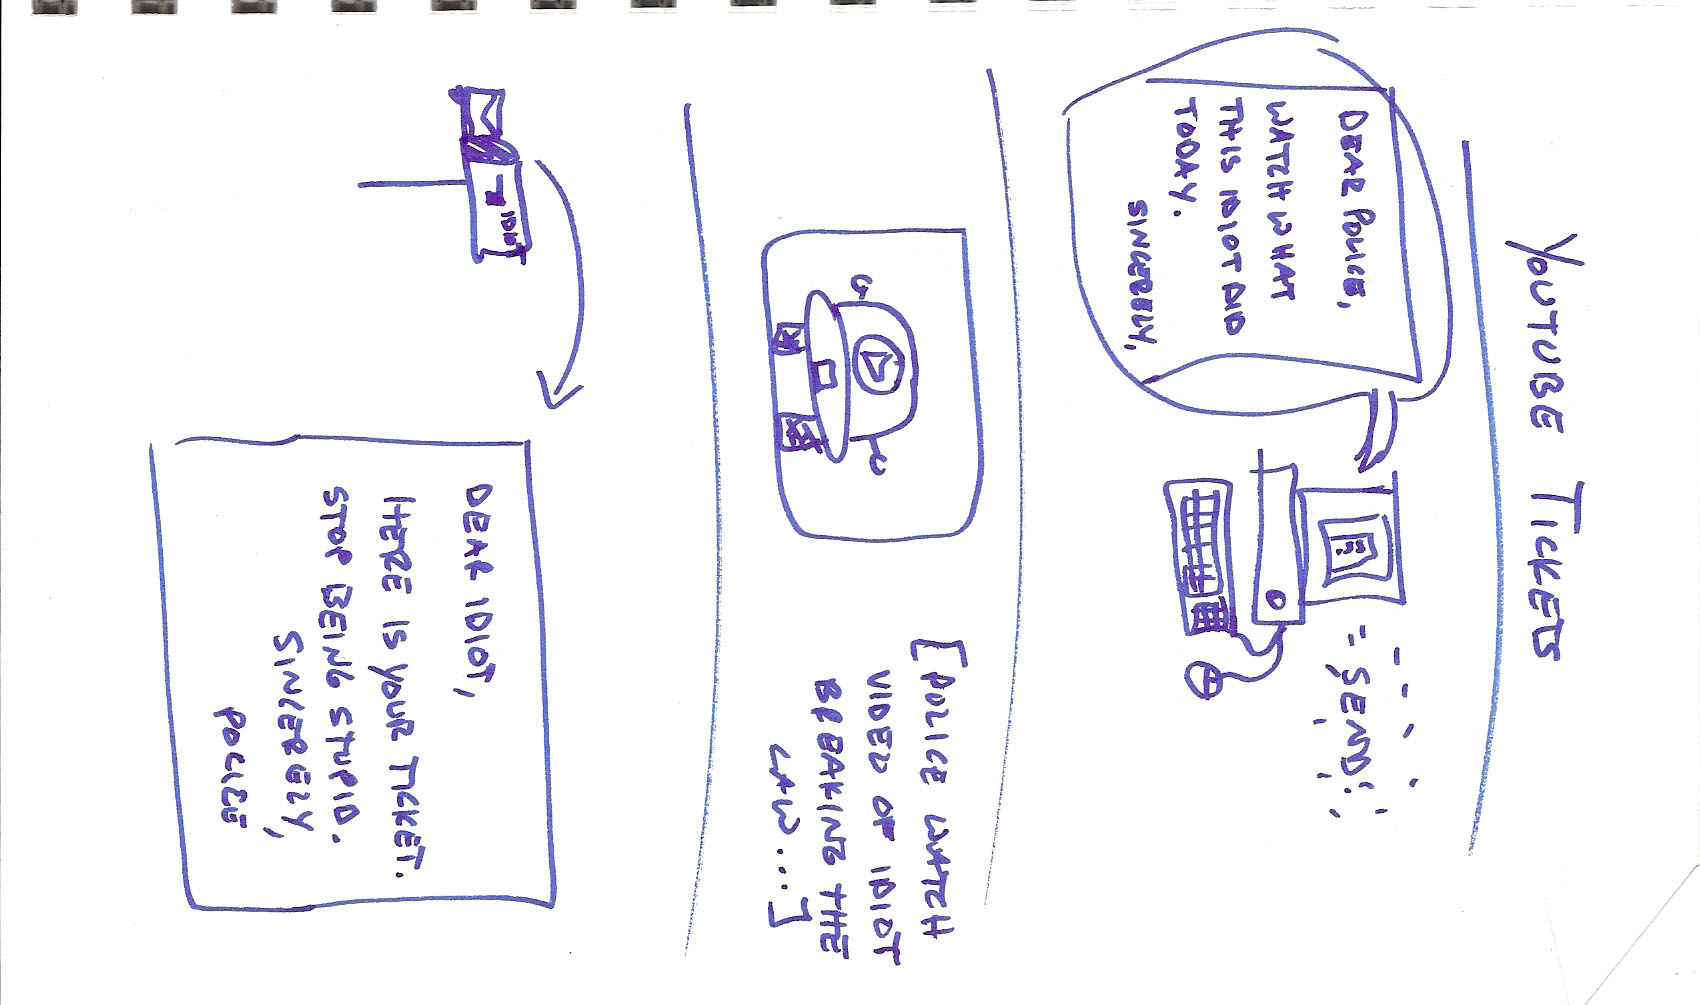 YOUTUBE TICKETS
DEAR POLICE,
WATCH WHAT
THIS IDIOT DID
TODAY.
SINCERELY,
= SEND!
[POLICE WATCH
VIDEO OF IDIOT
BREAKING THE
LAW....]
IDIOT
DEAR IDIOT,
HERE IS YOUR TICKET.
STOP BEING STUPID.
SINCERELY,
POLICE